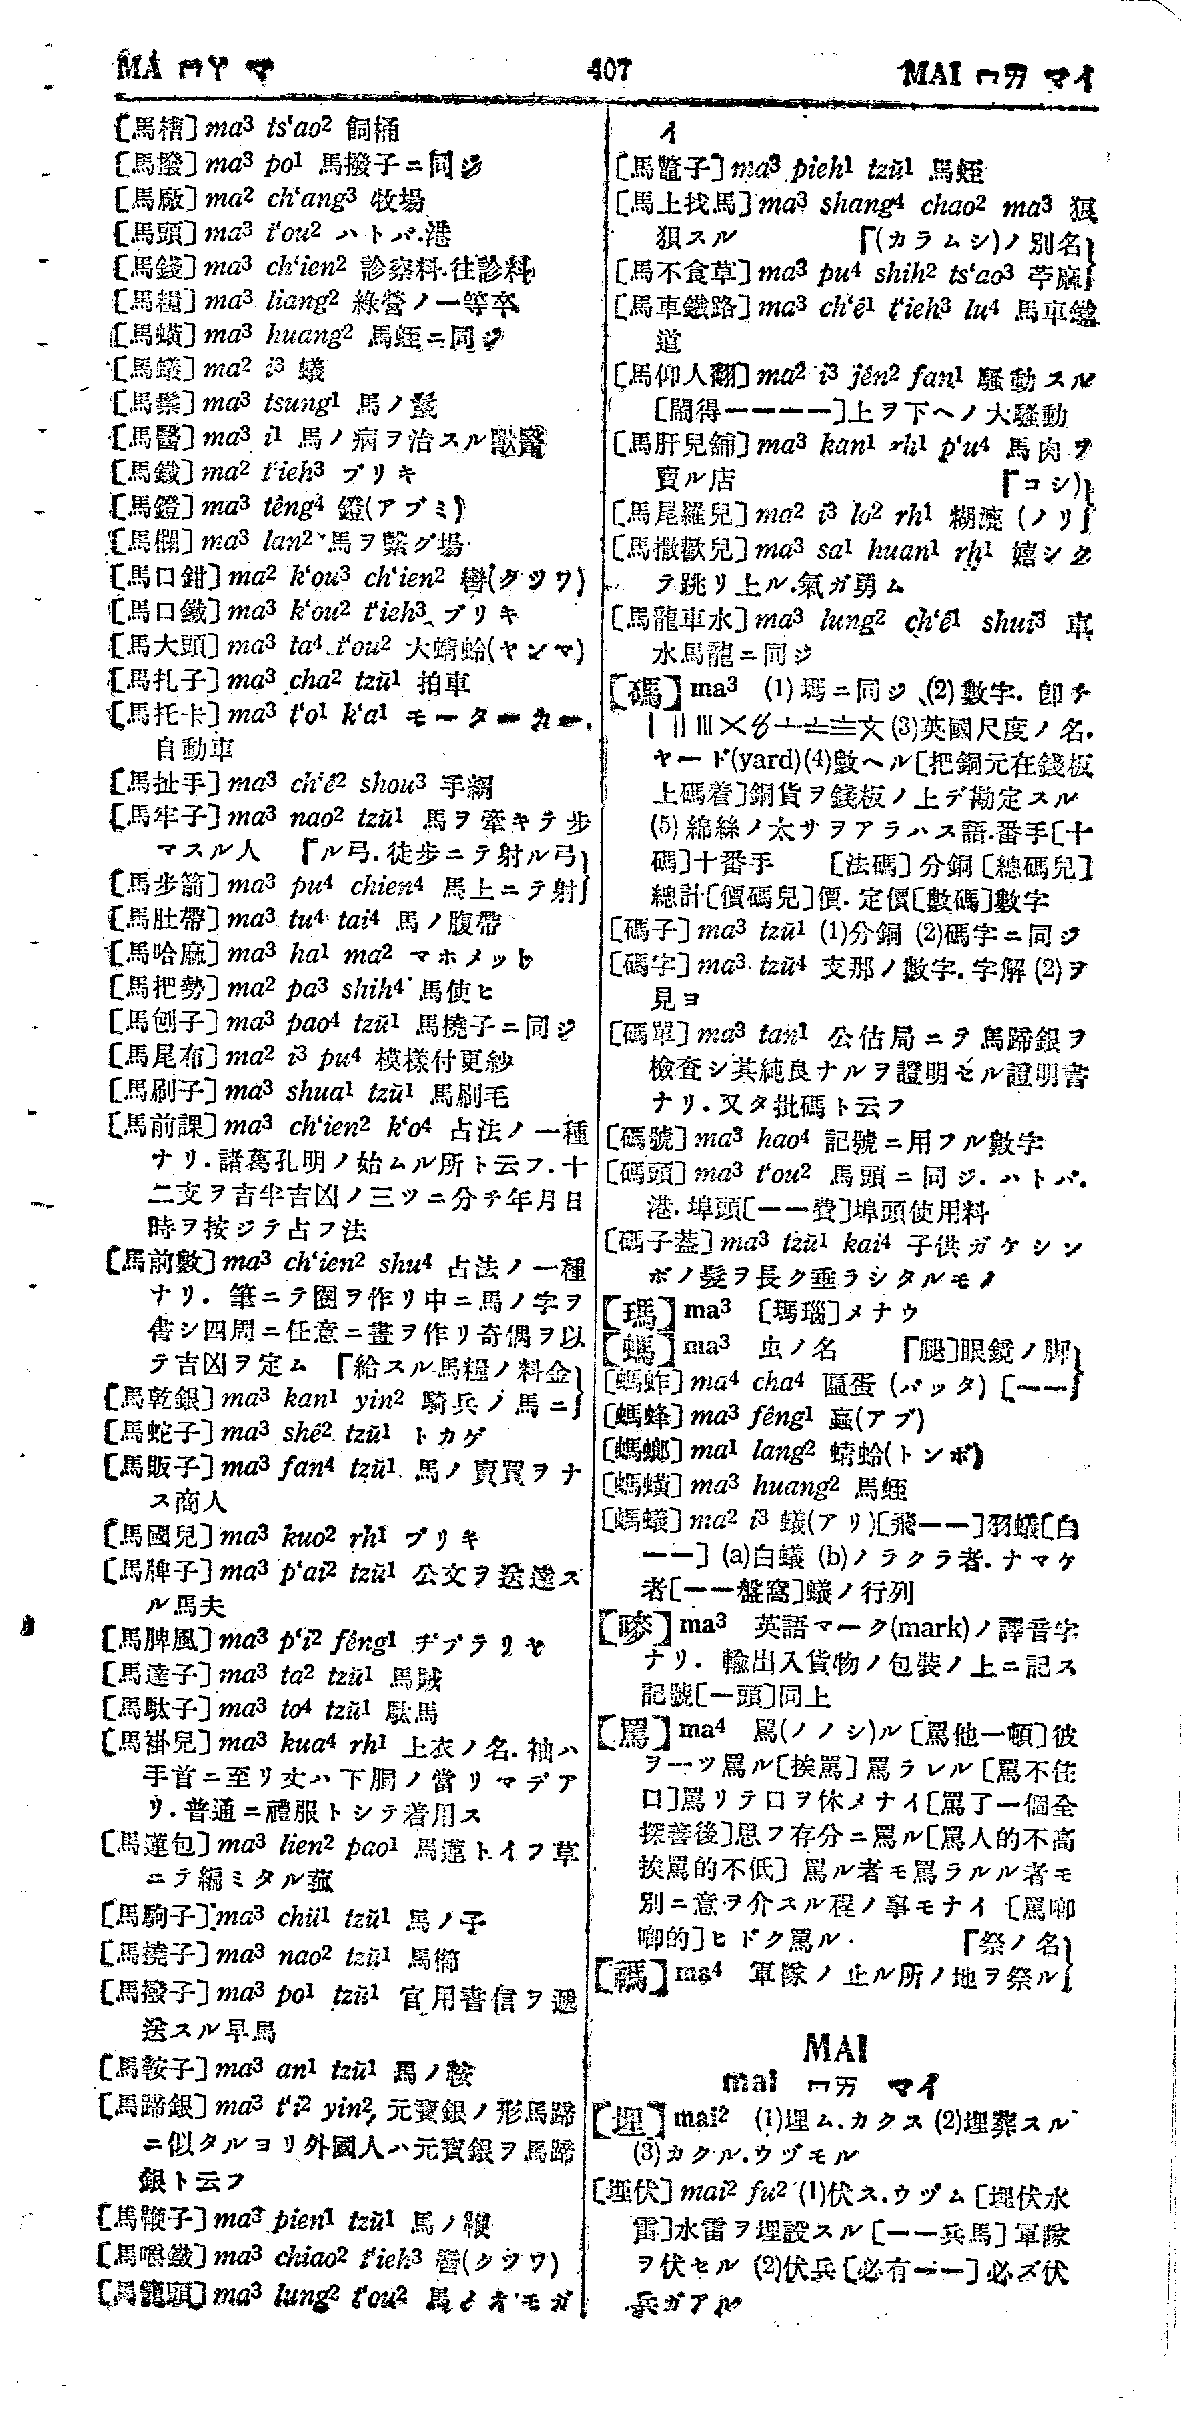 MA ㄇㄚ マ
407
MAI ㄇㄞ マイ
[馬槽] ma³ ts'ao² 飼桶
[馬撥] ma³ po¹ 馬撥子ニ同ジ
[馬廠] ma² ch'ang³ 牧場
[馬頭] ma³ t'ou² ハトバ.港
[馬錢] ma³ ch'ien² 診察料.往診料
[馬糧] ma³ liang² 綠營ノ一等卒
[馬蟥] ma³ huang² 馬蛭ニ同ジ
[馬蟻] ma² i³ 蟻
[馬鬃] ma³ tsung¹ 馬ノ鬣
[馬醫] ma³ i¹ 馬ノ病ヲ治スル獸醫
[馬鐵] ma² t'ieh³ ブリキ
[馬鐙] ma³ têng⁴ 鐙(アブミ)
[馬欄] ma³ lan² 馬ヲ繫グ場
[馬口鉗] ma² k'ou³ ch'ien² 轡(クツワ)
[馬口鐵] ma³ k'ou² t'ieh³ ブリキ
[馬大頭] ma³ ta⁴ t'ou² 大蜻蛉(ヤンマ)
[馬扎子] ma³ cha² tzŭ¹ 拍車
[馬托卡] ma³ t'o¹ k'a¹ モーターカー.
自動車
[馬扯手] ma³ ch'ê² shou³ 手綱
[馬牢子] ma³ nao² tzŭ¹ 馬ヲ牽キテ步
マスル人 「ル弓.徒步ニテ射ル弓
[馬步箭] ma³ pu⁴ chien⁴ 馬上ニテ射
[馬肚帶] ma³ tu⁴ tai⁴ 馬ノ腹帶
[馬哈麻] ma³ ha¹ ma² マホメット
[馬把勢] ma² pa³ shih⁴ 馬使ヒ
[馬刨子] ma³ pao⁴ tzŭ¹ 馬撓子ニ同ジ
[馬尾布] ma² i³ pu⁴ 模樣付更紗
[馬刷子] ma³ shua¹ tzŭ¹ 馬刷毛
[馬前課] ma³ ch'ien² k'o⁴ 占法ノ一種
ナリ.諸葛孔明ノ始ムル所ト云フ.十
二支ヲ吉半吉凶ノ三ツニ分チ年月日
時ヲ按ジテ占フ法
[馬前數] ma³ ch'ien² shu⁴ 占法ノ一種
ナリ. 筆ニテ圈ヲ作リ中ニ馬ノ字ヲ
書シ四周ニ任意ニ畫ヲ作リ奇偶ヲ以
テ吉凶ヲ定ム 「給スル馬糧ノ料金
[馬乾銀] ma³ kan¹ yin² 騎兵ノ馬ニ
[馬蛇子] ma³ shê² tzŭ¹ トカゲ
[馬販子] ma³ fan⁴ tzŭ¹ 馬ノ賣買ヲナ
ス商人
[馬國兒] ma³ kuo² rh¹ ブリキ
[馬牌子] ma³ p'ai² tzŭ¹ 公文ヲ送達ス
ル馬夫
[馬脾風] ma³ p'i² fêng¹ ヂブテリヤ
[馬達子] ma³ ta² tzŭ¹ 馬賊
[馬駄子] ma³ to⁴ tzŭ¹ 駄馬
[馬褂兒] ma³ kua⁴ rh¹ 上衣ノ名.袖ハ
手首ニ至リ丈ハ下胴ノ當リマデア
リ.普通ニ禮服トシテ着用ス
[馬蓮包] ma³ lien² pao¹ 馬蓮トイフ草
ニテ編ミタル菰
[馬駒子] ma³ chü¹ tzŭ¹ 馬ノ子
[馬撓子] ma³ nao² tzŭ¹ 馬櫛
[馬撥子] ma³ po¹ tzŭ¹ 官用書信ヲ遞
送スル早馬
[馬鞍子] ma³ an¹ tzŭ¹ 馬ノ鞍
[馬蹄銀] ma³ t'i² yin² 元寶銀ノ形馬蹄
ニ似タルヨリ外國人ハ元寶銀ヲ馬蹄
銀ト云フ
[馬鞭子] ma³ pien¹ tzŭ¹ 馬ノ鞭
[馬嚼鐵] ma³ chiao² t'ieh³ 轡(クツワ)
[馬籠頭] ma³ lung² t'ou² 馬ノオモガ
イ
[馬鼈子] ma³ pieh¹ tzŭ¹ 馬蛭
[馬上找馬] ma³ shang⁴ chao² ma³ 狼
狽スル 「(カラムシ)ノ別名
[馬不食草] ma³ pu⁴ shih² ts'ao³ 苧麻
[馬車鐵路] ma³ ch'ê¹ t'ieh³ lu⁴ 馬車鐵
道
[馬仰人翻] ma² i³ jên² fan¹ 騷動スル
[鬧得一一一一]上ヲ下ヘノ大騷動
[馬肝兒鋪] ma³ kan¹ rh¹ p'u⁴ 馬肉ヲ
賣ル店 「コシ)
[馬尾羅兒] ma² i³ lo² rh¹ 糊漉 (ノリ
[馬撒歡兒] ma³ sa¹ huan¹ rh¹ 嬉シク
テ跳リ上ル.氣ガ勇ム
[馬龍車水] ma³ lung² ch'ê¹ shui³ 車
水馬龍ニ同ジ
[碼] ma³ (1)瑪ニ同ジ (2)數字. 卽チ
〡〢〣〤〥〦〧〨文 (3)英國尺度ノ名.
ヤード(yard) (4)數ヘル[把銅元在錢板
上碼着]銅貨ヲ錢板ノ上デ勘定スル
(5) 綿絲ノ太サヲアラハス語.番手[十
碼]十番手 [法碼] 分銅 [總碼兒]
總計[價碼兒]價. 定價[數碼]數字
[碼子] ma³ tzŭ¹ (1)分銅 (2)碼字ニ同ジ
[碼字] ma³ tzŭ⁴ 支那ノ數字.字解 (2)ヲ
見ヨ
[碼單] ma³ tan¹ 公估局ニテ馬蹄銀ヲ
檢査シ其純良ナルヲ證明セル證明書
ナリ.又タ批碼ト云フ
[碼號] ma³ hao⁴ 記號ニ用フル數字
[碼頭] ma³ t'ou² 馬頭ニ同ジ.ハトバ.
港.埠頭[一一費]埠頭使用料
[碼子蓋] ma³ tzŭ¹ kai⁴ 子供ガケシン
ボノ髮ヲ長ク垂ラシタルモノ
[瑪] ma³ [瑪瑙]メナウ
[螞] ma³ 虫ノ名 「腿]眼鏡ノ脚
[螞蚱] ma⁴ cha⁴ 蝗蟲 (バッタ) [一一
[螞蜂] ma³ fêng¹ 蝱(アブ)
[螞螂] ma¹ lang² 蜻蛉(トンボ)
[螞蟥] ma³ huang² 馬蛭
[螞蟻] ma² i³ 蟻(アリ)[飛一一]羽蟻[白
一一] (a)白蟻 (b)ノラクラ者.ナマケ
者[一一盤窩]蟻ノ行列
ma³ 英語マーク(mark)ノ譯音字
ナリ. 輸出入貨物ノ包裝ノ上ニ記ス
記號[一頭]同上
[罵] ma⁴ 罵(ノノシ)ル [罵他一頓]彼
ヲ一ツ罵ル[挨罵] 罵ラレル [罵不住
口]罵リテ口ヲ休メナイ[罵了一個全
探善後]思フ存分ニ罵ル[罵人的不高
挨罵的不低] 罵ル者モ罵ラルル者モ
別ニ意ヲ介スル程ノ事モナイ [罵唧
唧的]ヒドク罵ル. 「祭ノ名
[禡] ma⁴ 軍隊ノ止ル所ノ地ヲ祭ル
MAI
mai ㄇㄞ マイ
[埋] mai² (1)埋ム.カクス (2)埋葬スル
(3)カクル.ウヅモル
[埋伏] mai² fu² (1)伏ス.ウヅム [埋伏水
雷]水雷ヲ埋設スル [一一兵馬] 軍隊
ヲ伏セル (2)伏兵 [必有一一] 必ズ伏
兵ガアル